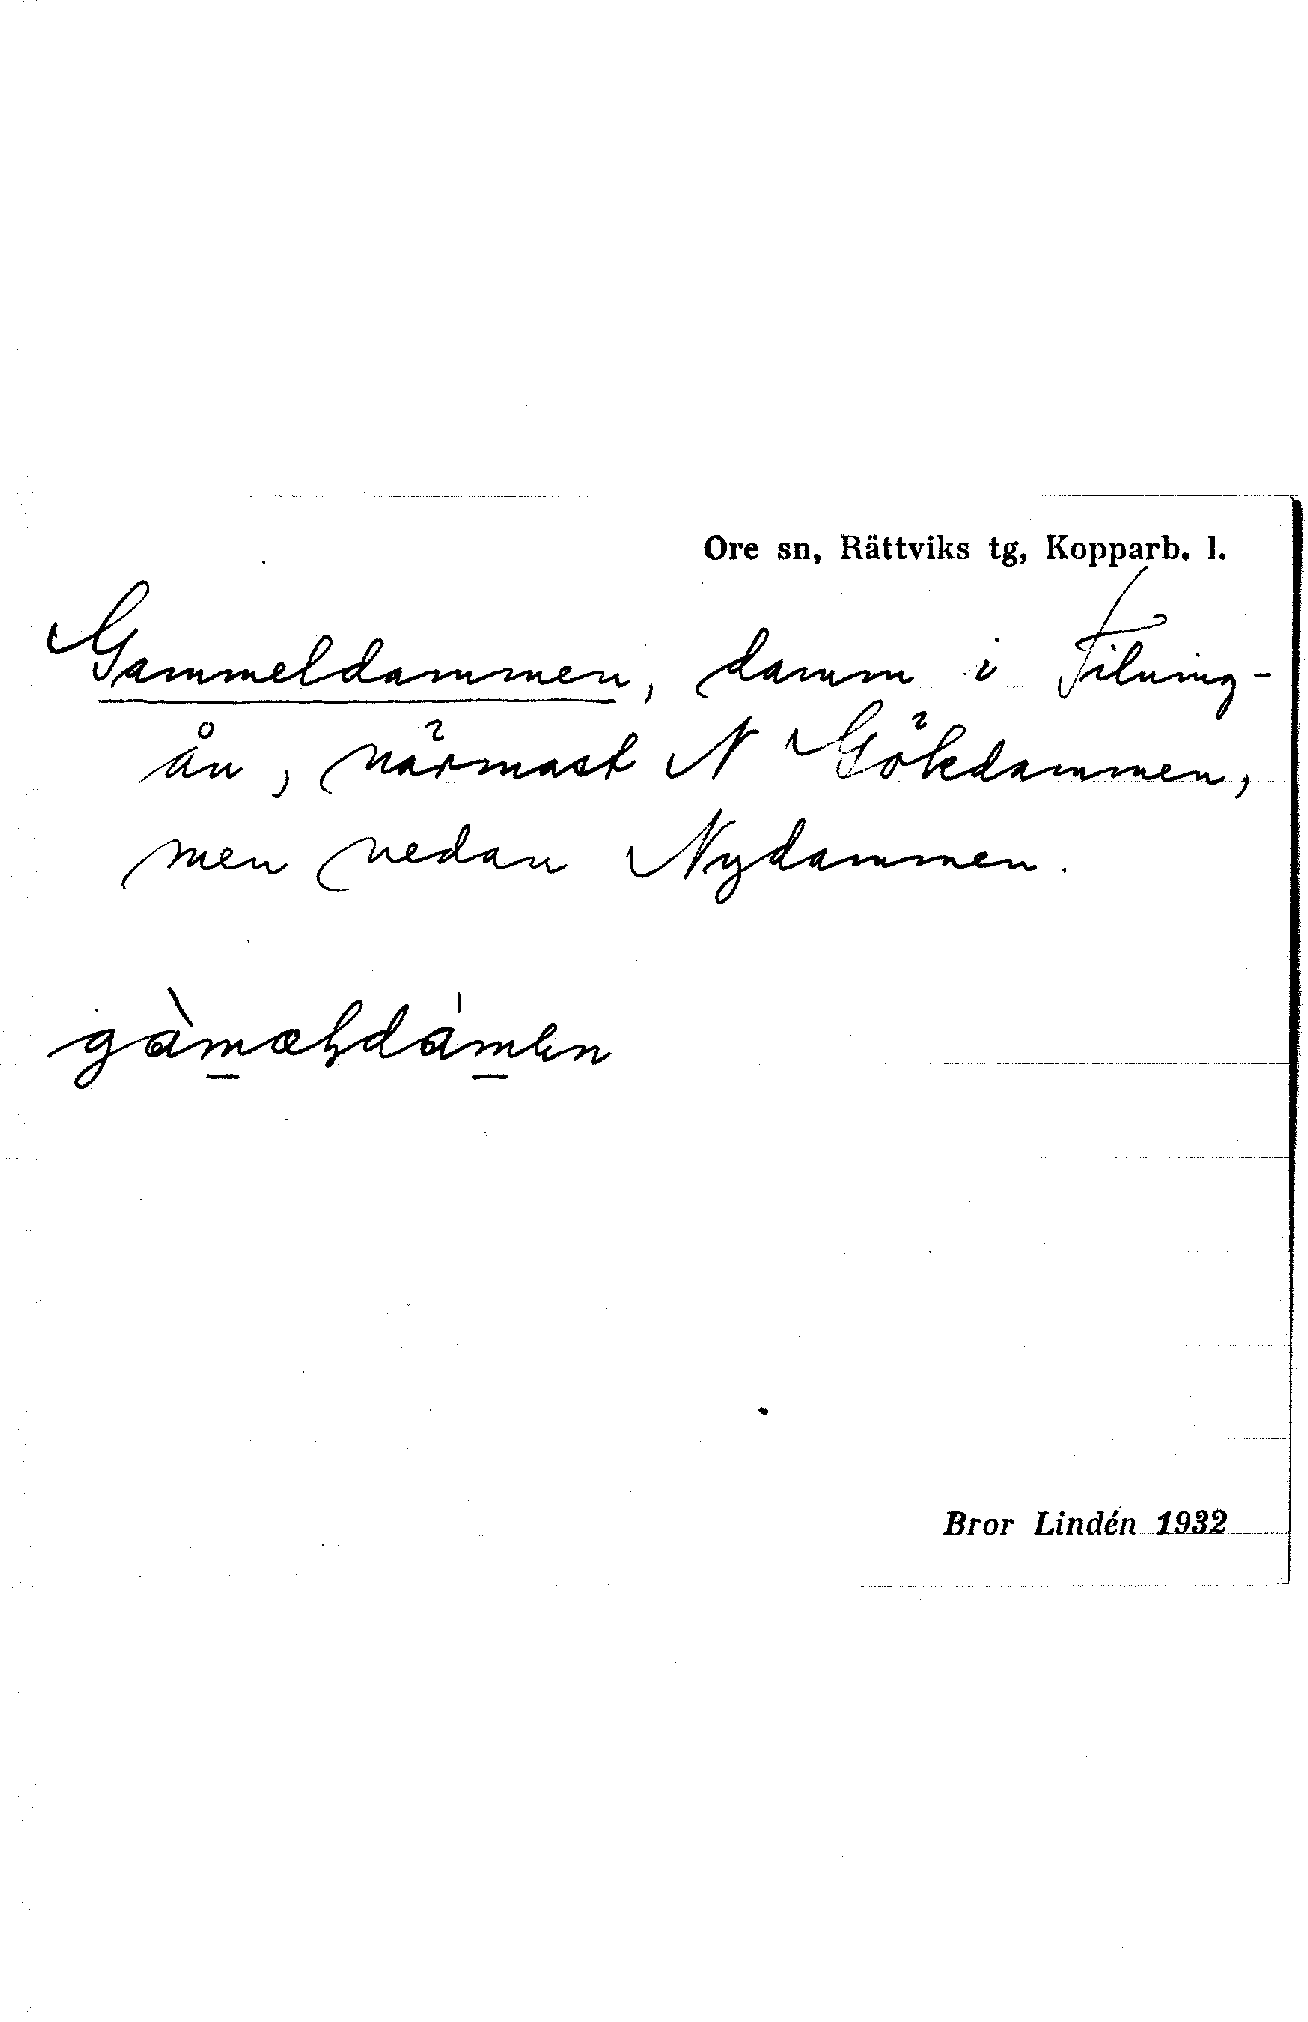 Ore sn, Rättviks tg, Kopparb. l.
Gammeldammen, damm i Filning-
ån, närmast N Gökdammen,
men nedan Nydammen.
Bror Lindén 1932